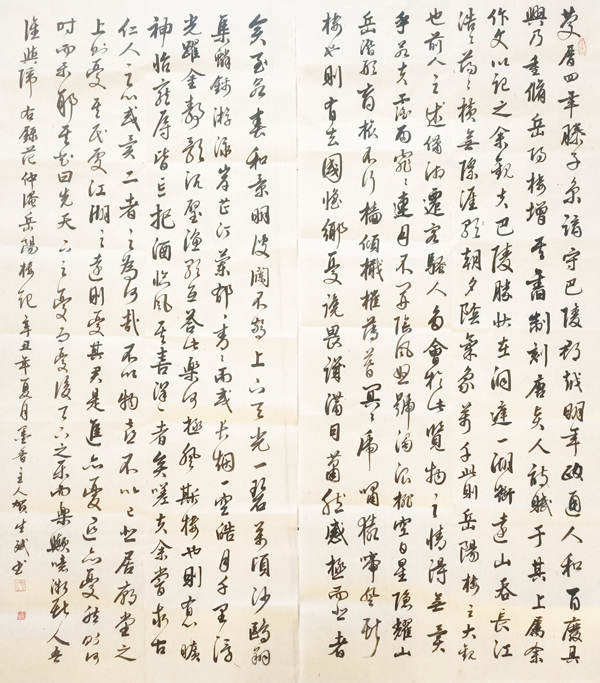 慶曆四年滕子京謫守巴陵郡越明年政通人和百廢具
興乃重脩岳陽樓增其舊制刻唐賢人詩賦于其上屬余
作文以記之余觀夫巴陵勝狀在洞庭一湖銜遠山吞長江
浩〻蕩〻橫無際涯朝夕陰氣象萬千此則岳陽樓之大觀
也前人之述備遷客騷人多會於此覽物之情得無異
乎若夫霪雨霏〻連月不開陰風怒號濁浪排空日星隱耀山
岳潛形商旅不行檣傾楫摧薄暮冥〻虎嘯猿啼登斯
樓也則有去國懷鄉憂讒畏譏滿目蕭然感極而悲者
矣至若春和景明波瀾不驚上下天光一碧萬頃沙鷗翔
集錦鱗游泳岸芷汀蘭郁〻青〻而或長烟一空皓月千里浮
光躍金靜影沉璧漁歌互答此樂何極登斯樓也則有心曠
神怡寵辱皆忘把酒臨風其喜洋〻者矣嗟夫余嘗求古
仁人之心或異二者之為何哉不以物喜不以己悲居廟堂之
上則憂其民處江湖之遠則憂其君是進亦憂退亦憂然則何
時而樂耶其必曰先天下之憂而憂後天下之樂而樂歟噫微斯人吾
誰與歸 右錄范仲淹岳陽樓記 辛丑年夏月墨香主人賀生斌書